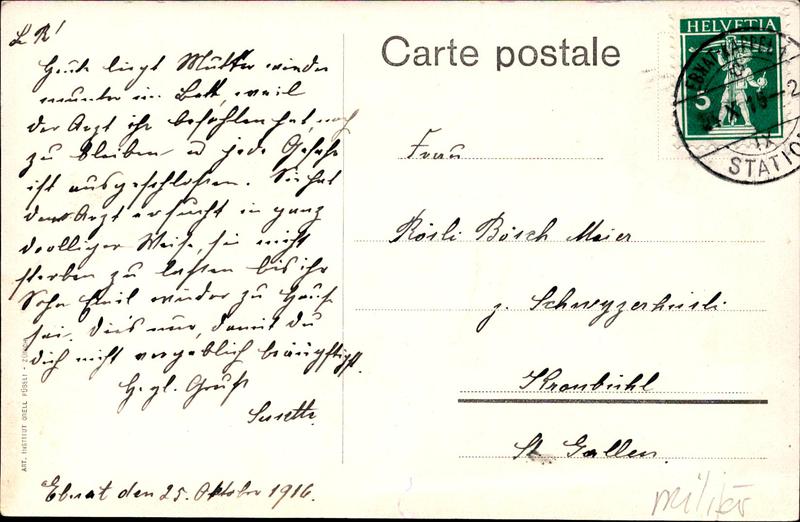 L R!
Heute liegt Mutter wieder
munter im Bett, weil
der Arzt ihr befohlen hat, noch
zu bleiben u jede Gefahr
ist ausgeschlossen. Sie hat
den Arzt ersucht in ganz
drolliger Weise, sie nicht
sterben zu lassen bis ihr
Sohn Emil wieder zu Hause
sei. Dies nur, damit du
dich nicht vergeblich beängstigst.
H. gl. Gruss
Susette.
Ebnat den 25. Oktober 1916.
ART. INSTITUT ORELL FÜSSLI - ZÜRICH
Carte postale
HELVETIA
5
EBNAT-KAPPEL
XI
STATIO
Frau
Rösli Bösch Meier
z. Schwyzerhüsli
Kronbühl
St. Gallen.
Militär